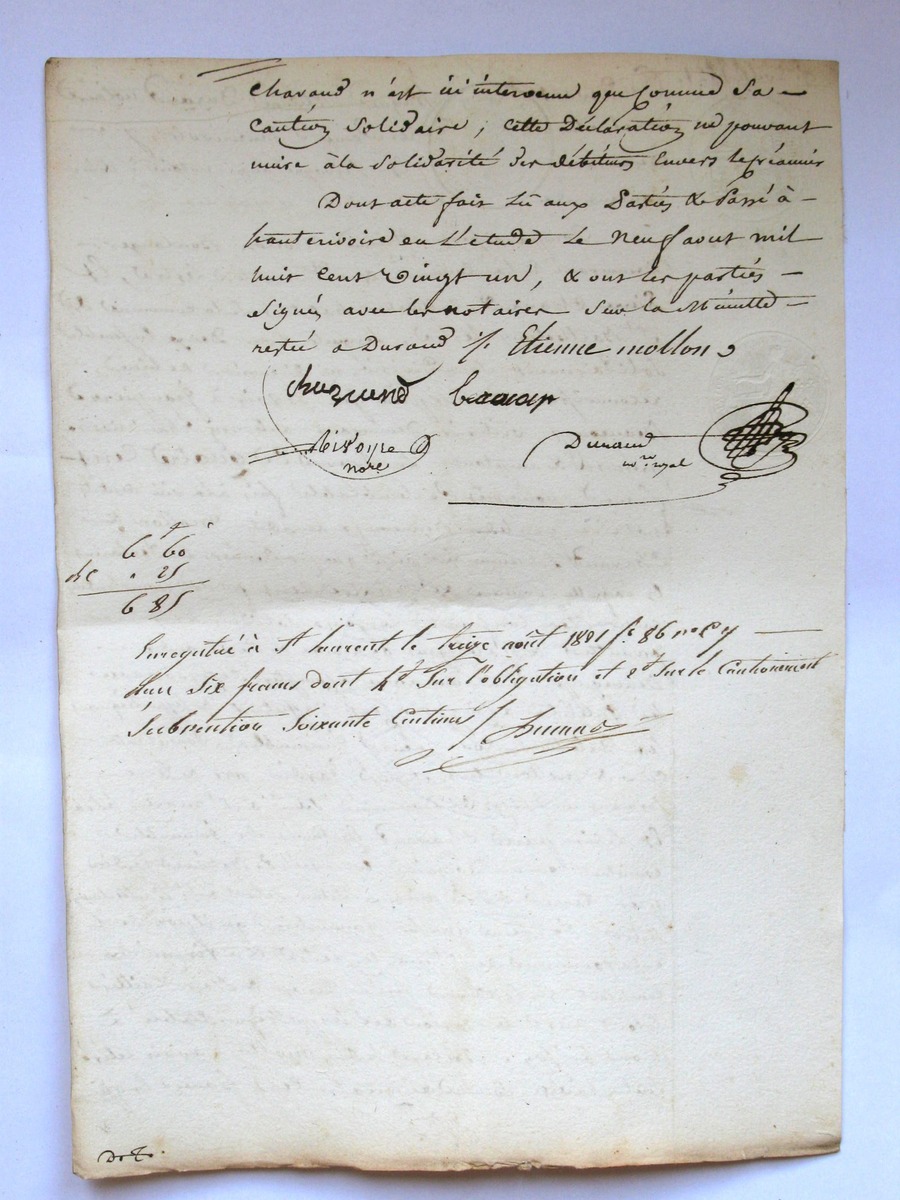 Chavand n'est ici intervenu que comme sa
Caution Solidaire, cette Déclaration ne pouvant
nuire à la Solidarité des débiteurs Envers le
Dont acte fait Lû aux Parties & Passé à
hauterivoire en L'étude Le Neuf aout mil
huit cent vingt un, & ont les parties
Signés avec les notaires Sur la Minutte
restée a Durand / Etienne mollon
Durand
nore
nre royal
6 60
de . 25
6 85
Enregistré à St laurent le treize août 1821 fo 86
Six francs dont 4 Sur l'obligation et 2 Sur le Cautionnement
Subvention Soixante Centimes /
D. T.